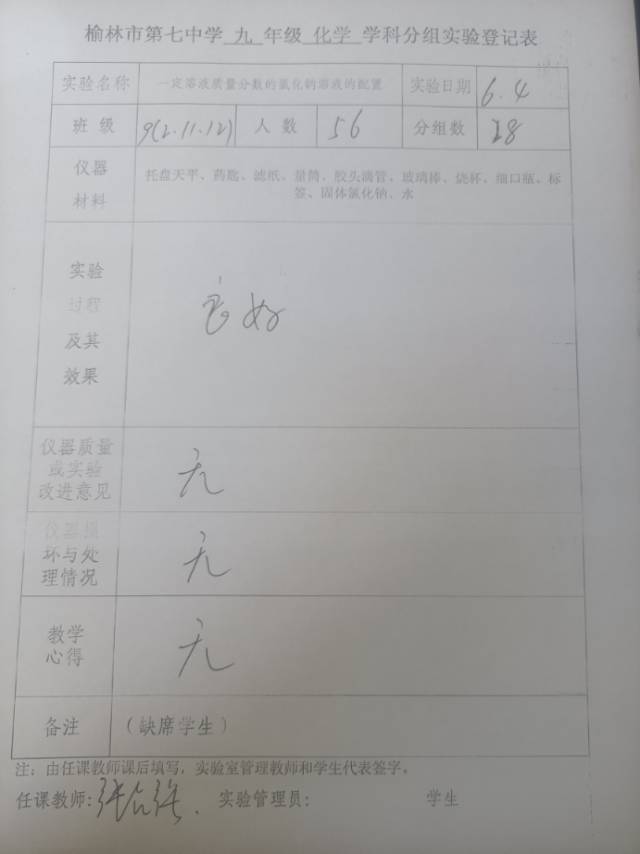 榆林市第七中学 九 年级 化学 学科分组实验登记表
实验名称 一定溶质质量分数的氯化钠溶液的配置 实验日期 6.4
班 级 9(2.11.12) 人 数 56 分组数 28
仪器
材料
托盘天平、药匙、滤纸、量筒、胶头滴管、玻璃棒、烧杯、细口瓶、标
签、固体氯化钠、水
实验
过程
及其
效果
良好
仪器质量
或实验
改进意见
无
仪器损
坏与处
理情况
无
教学
心得
无
备注 （缺席学生）
注：由任课教师课后填写，实验室管理教师和学生代表签字。
任课教师: 实验管理员: 学生